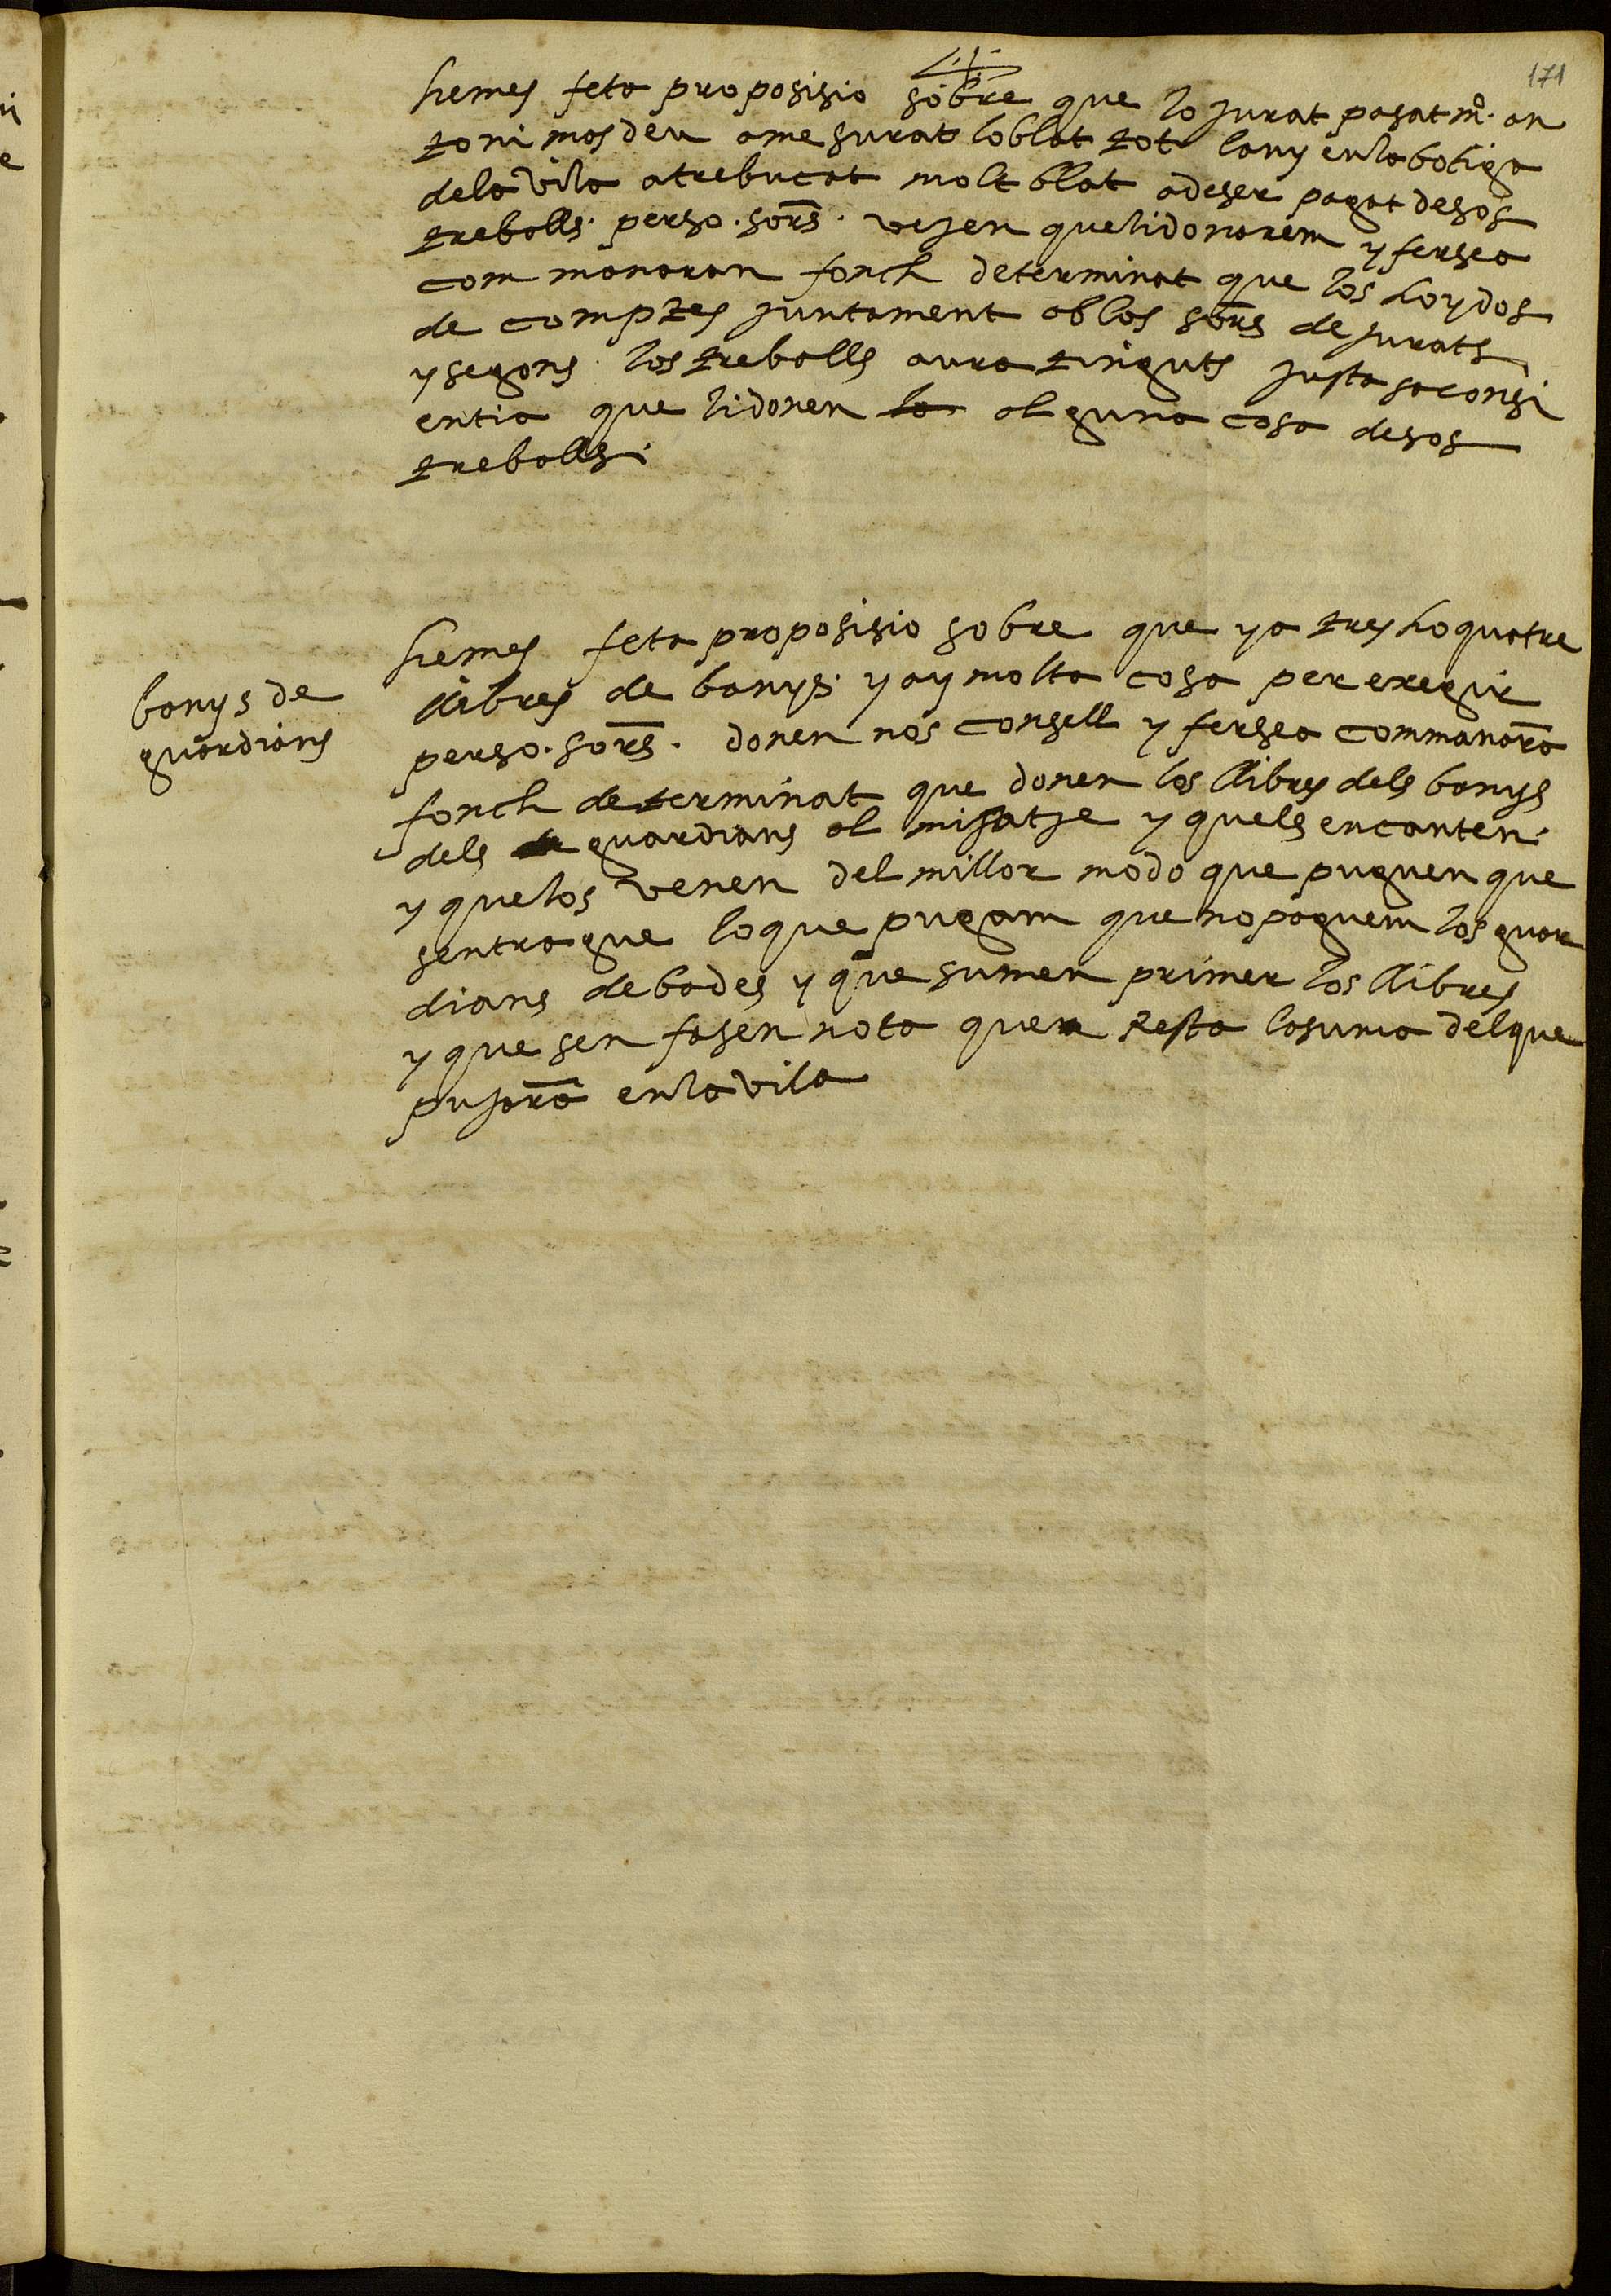 171
hemes feta proposisio sobre que lo jurat pasat mº. an
toni mosdeu a mesurat lo blat tot lany en la botiga
dela vila a trebucat molt blat a de ser pagat de sos
treballs. perso. sors. vejen que li donarem y ferse a
com manaran fonch determinat que los hoydos
de comptes juntament ab los sors de jurats
y segons los treballs aura tinguts justa sa consi
entia que li donen la alguna cosa de sos
treballs.
hemes feta proposisio sobre que ya tres ho quatre
llibres de banys. y ay molta cosa per exegir
banys de
guardians
perso. sors. donen nos consell y ferse a com manara
fonch determinat que donen los llibres dels banys
dels guardians al misatje y quels encanten.
y que los venen del millor modo que puguen que
sentrague lo que pugam que no paguem los guar
dians debades y que sumen primer los llibres
y que sen fasen nota quen resta la suma del que
pujara en la vila